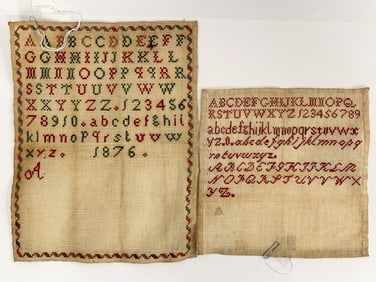 AABBCCDDEEFF
GGHHIIJJKKLL
MMNNOOPPQQRR
SSTTUUVVWW
XXYYZZ.123456
78910.abcdefghijk
klmnopqrstuvw
xyz. 1876.
A
ABCDEFGHIJKLMNOPQ
RSTUVWXYZ 123456789
abcdefghijklmnopqrstuvwx
yz.0.abcdefghijklmnopq
rstuvwxyz.
ABCDEFGHIJKLM
NOPQRSTUVWX
YZ.